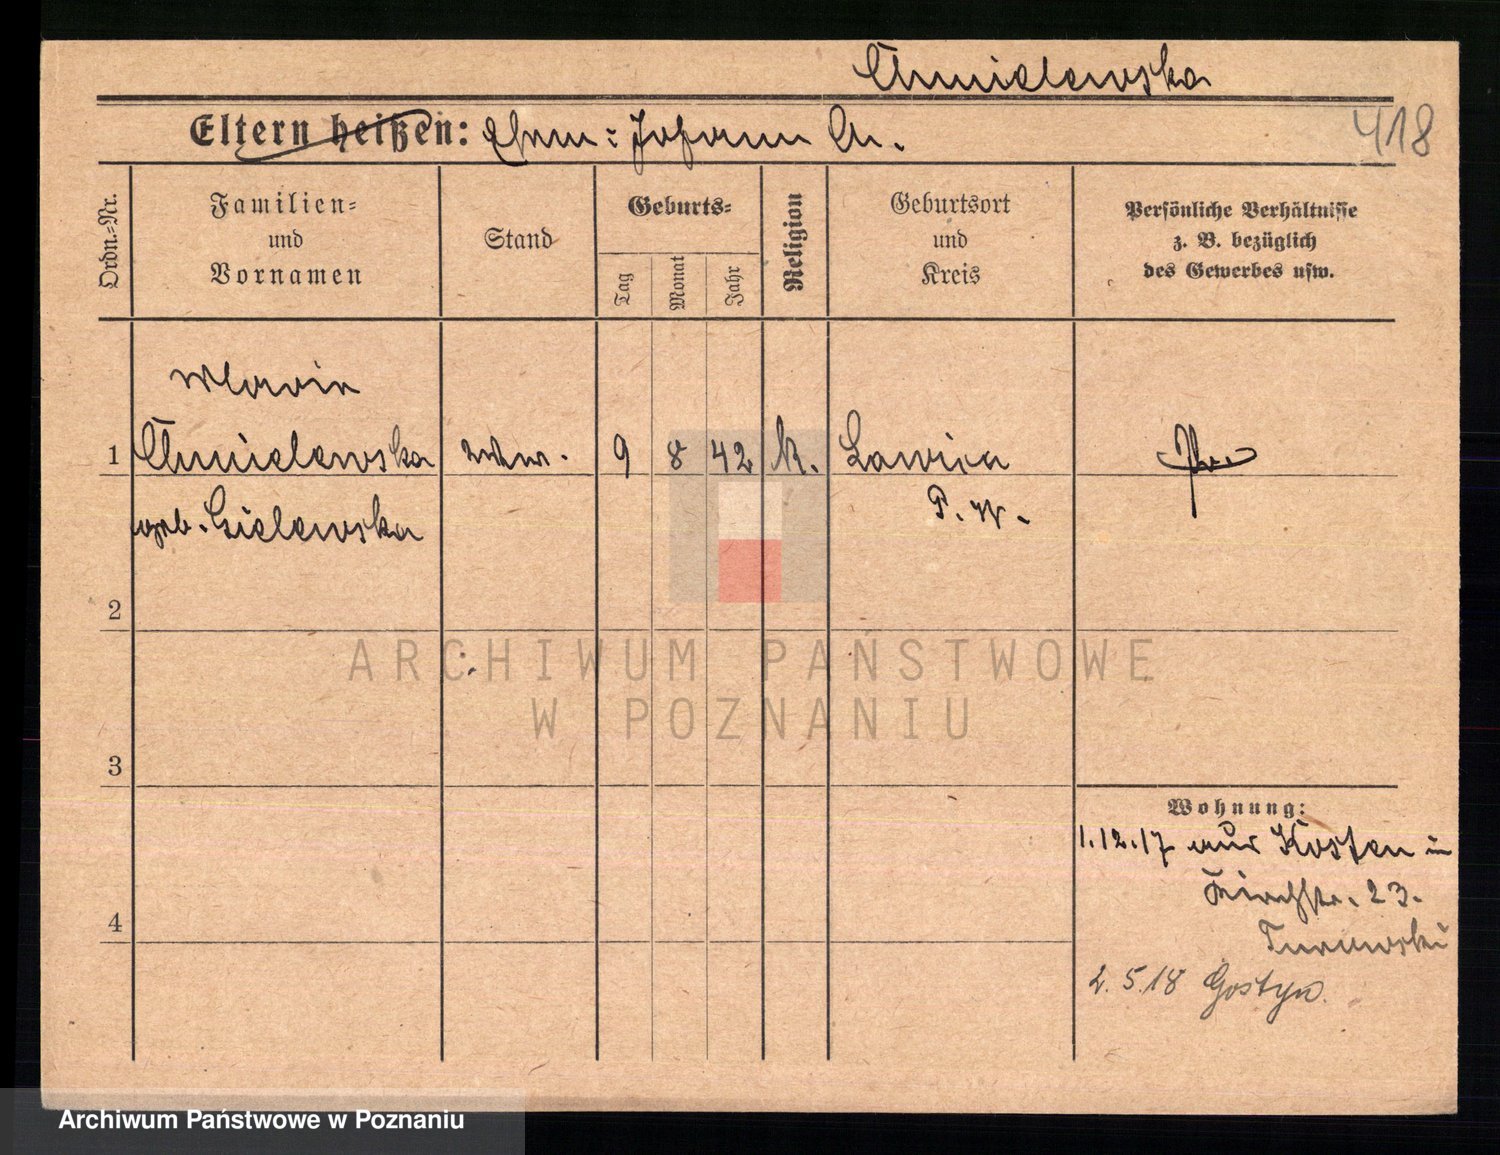 Chmielewska
418
Eltern heißen: Ehem: Johann Ch.
Ordn.-Nr.
Familien-
und
Vornamen
Stand
Geburts-
Tag
Monat
Jahr
Religion
Geburtsort
und
Kreis
Persönliche Verhältnisse
z. B. bezüglich
des Gewerbes usw.
Maria
1 Chmielewska Wwe. 9 8 42 K. Lawica Pr.
geb. Gielewska P. W.
2
3
4
ARCHIWUM PAŃSTWOWE
W POZNANIU
Wohnung:
1.12.17 aus Kosten in
Kirchstr. 23.
Turowski
2.5.18 Gostyn.
Archiwum Państwowe w Poznaniu